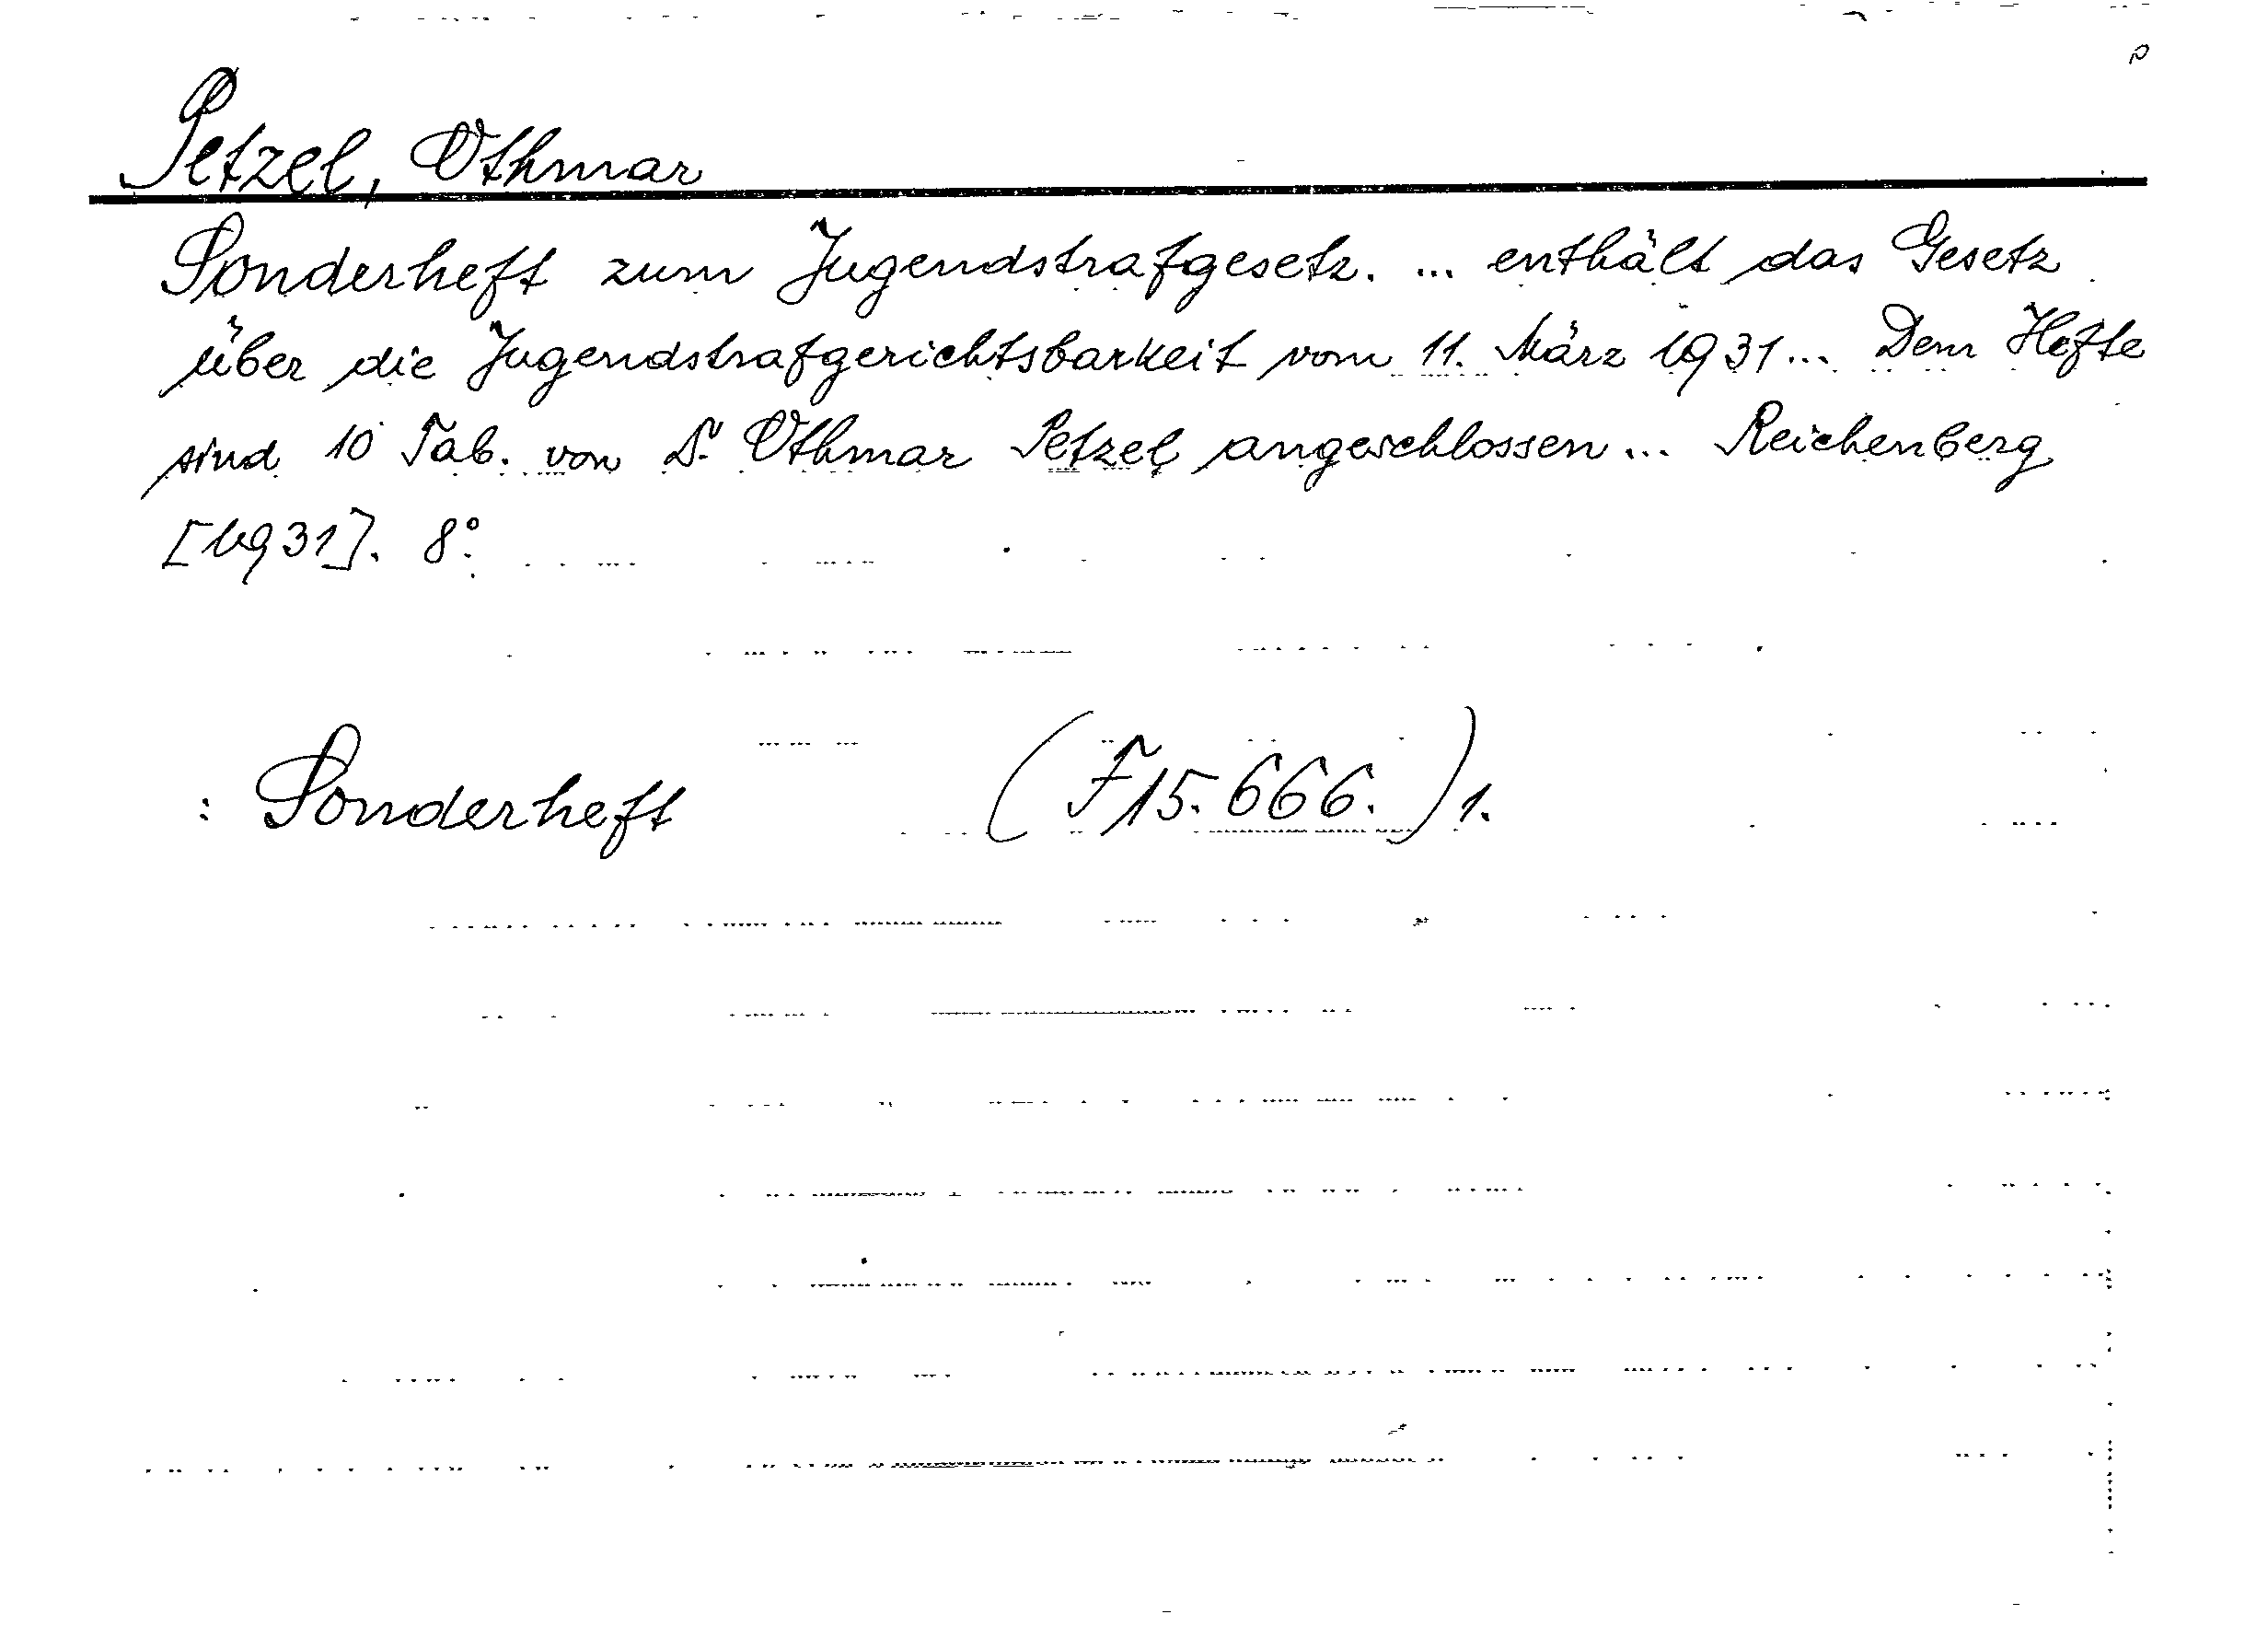 Petzel, Othmar
Sonderheft zum Jugendstrafgesetz. ... enthält das Gesetz
über die Jugendstrafgerichtsbarkeit vom 11. März 1931... Dem Hefte
sind 10 Tab. von Dr. Othmar Petzel angeschlossen... Reichenberg
[1931]. 8°.
: Sonderheft (F 15.666.) 1.